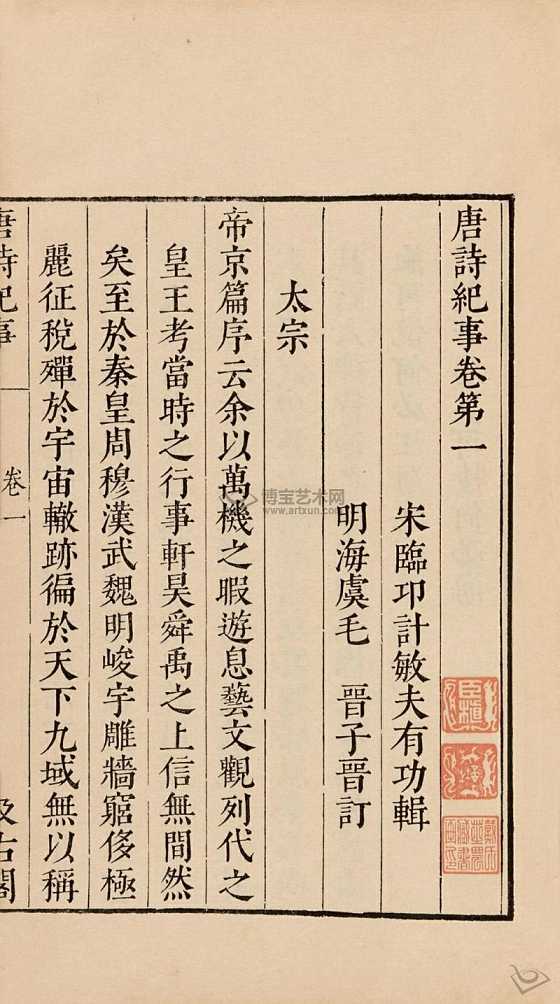 唐詩紀事卷第一
宋臨邛計敏夫有功輯
明海虞毛　晉子晉訂
太宗
帝京篇序云余以萬機之暇遊息藝文觀列代之
皇王考當時之行事軒昊舜禹之上信無間然
矣至於秦皇周穆漢武魏明峻宇雕牆窮侈極
麗征稅殫於宇宙轍跡徧於天下九域無以稱
唐詩紀事
卷一
汲古閣
博宝艺术网
www.artxun.com